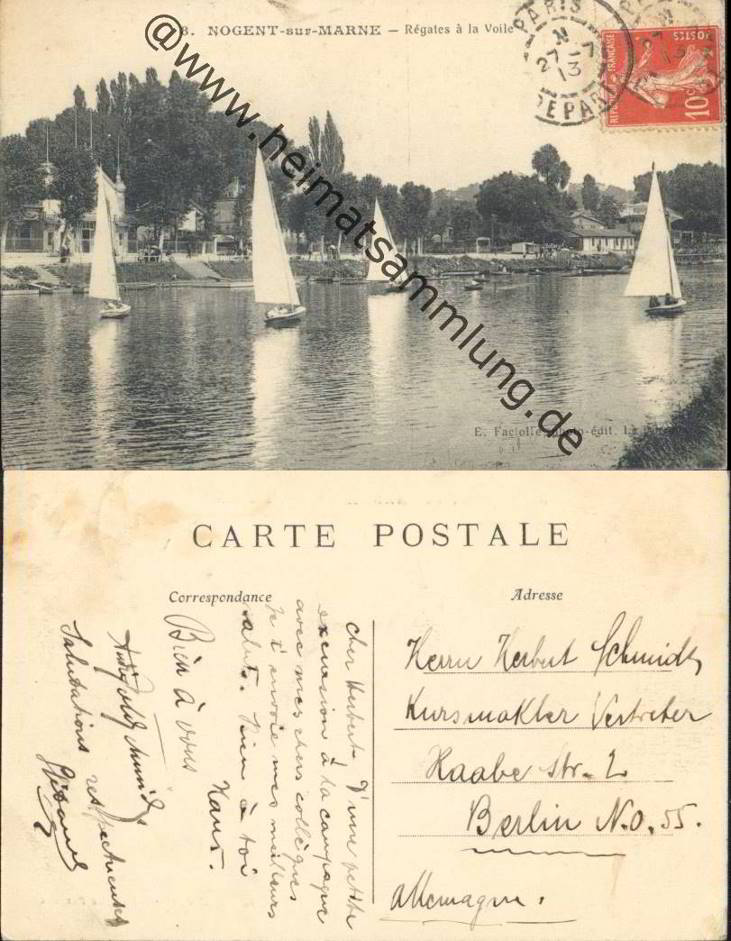 8. NOGENT-sur-MARNE — Régates à la Voile
PARIS
27-7
13
DEPART
REPUBLIQUE FRANÇAISE
POSTES
10c
@www.heimatsammlung.de
E. Faciolle, photo-édit.
CARTE POSTALE
Correspondance
Adresse
Cher Herbert. D'une petite
excursion à la campagne
avec mes chers collègues
je t'envoie mes meilleurs
saluts. Bien à toi
Hans.
Bien à vous
Salutations respectueuses
Herrn Herbert Schmidt,
Kursmakler Vertreter
Raabe Str. 2
Berlin N.O. 55.
Allemagne.